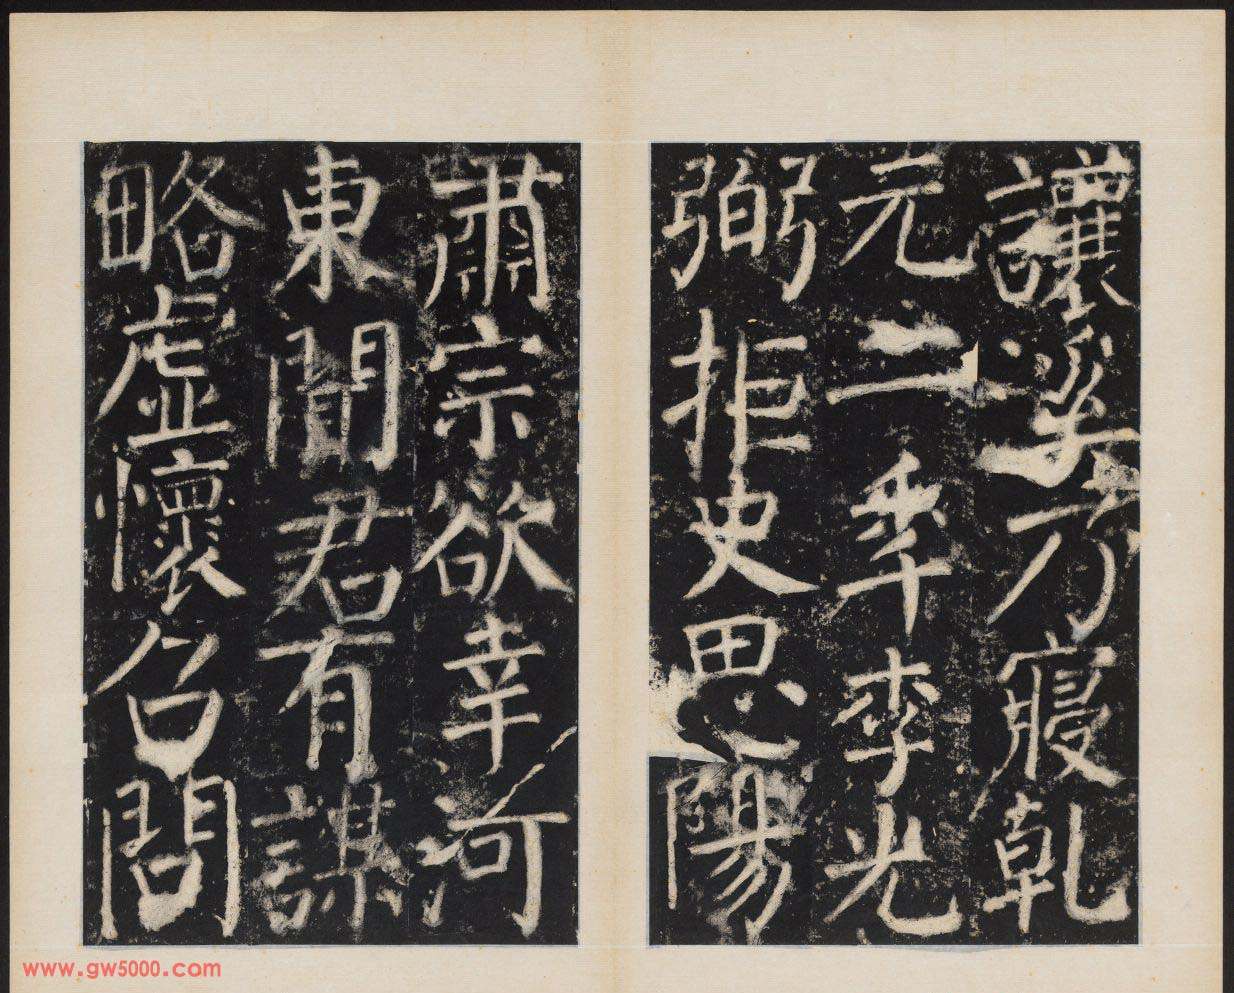 讓遂乃寢乾
元二年李光
弼拒史思陽
肅宗欲幸河
東聞君有謀
略虛懷召問
www.gw5000.com